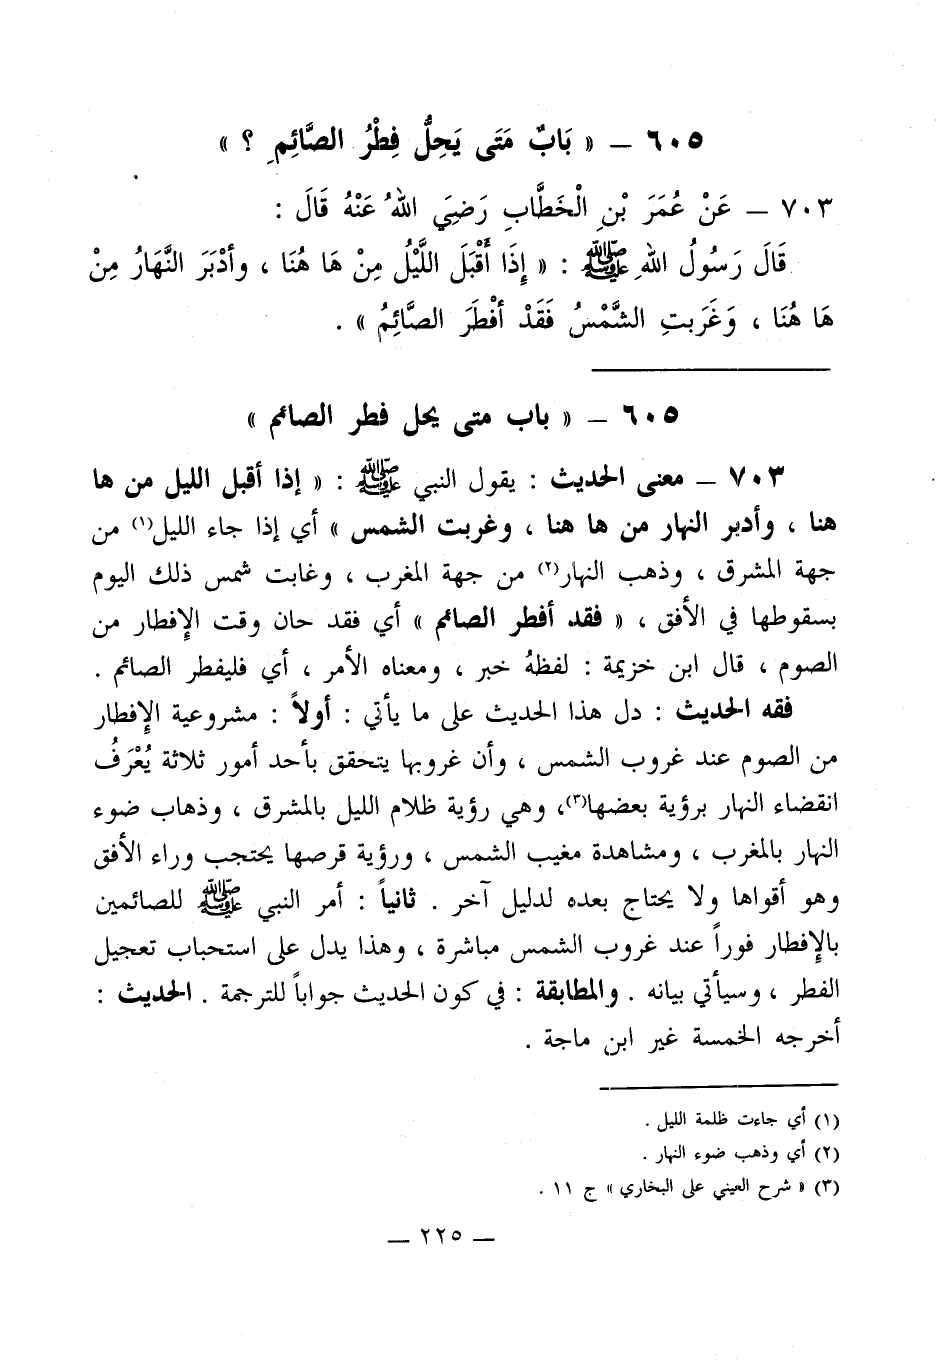 ٦٠٥ – « بَابٌ مَتَى يَحِلُّ فِطْرُ الصَّائِمِ ؟ »
٧٠٣ – عَنْ عُمَرَ بْنِ الْخَطَّابِ رَضِيَ اللهُ عَنْهُ قَالَ :
قَالَ رَسُولُ اللهِ ﷺ : « إِذَا أَقْبَلَ اللَّيْلُ مِنْ هَا هُنَا ، وأدْبَرَ النَّهَارُ مِنْ
هَا هُنَا ، وَغَرَبتِ الشَّمْسُ فَقَدْ أفْطَرَ الصَّائِمُ » .
٦٠٥ – « باب متى يحل فطر الصائم »
٧٠٣ – معنى الحديث : يقول النبي ﷺ : « إذا أقبل الليل من ها
هنا ، وأدبر النهار من ها هنا ، وغربت الشمس » أي إذا جاء الليل(١) من
جهة المشرق ، وذهب النهار(٢) من جهة المغرب ، وغابت شمس ذلك اليوم
بسقوطها في الأفق ، « فقد أفطر الصائم » أي فقد حان وقت الإفطار من
الصوم ، قال ابن خزيمة : لفظهُ خبر ، ومعناه الأمر ، أي فليفطر الصائم .
فقه الحديث : دل هذا الحديث على ما يأتي : أولاً : مشروعية الإفطار
من الصوم عند غروب الشمس ، وأن غروبها يتحقق بأحد أمور ثلاثة يُعْرَفُ
انقضاء النهار برؤية بعضها(٣)، وهي رؤية ظلام الليل بالمشرق ، وذهاب ضوء
النهار بالمغرب ، ومشاهدة مغيب الشمس ، ورؤية قرصها يحتجب وراء الأفق
وهو أقواها ولا يحتاج بعده لدليل آخر . ثانياً : أمر النبي ﷺ للصائمين
بالإفطار فوراً عند غروب الشمس مباشرة ، وهذا يدل على استحباب تعجيل
الفطر ، وسيأتي بيانه . والمطابقة : في كون الحديث جواباً للترجمة . الحديث :
أخرجه الخمسة غير ابن ماجة .
(١) أي جاءت ظلمة الليل .
(٢) أي وذهب ضوء النهار .
(٣) « شرح العيني على البخاري » ج ١١ .
– ٢٢٥ –